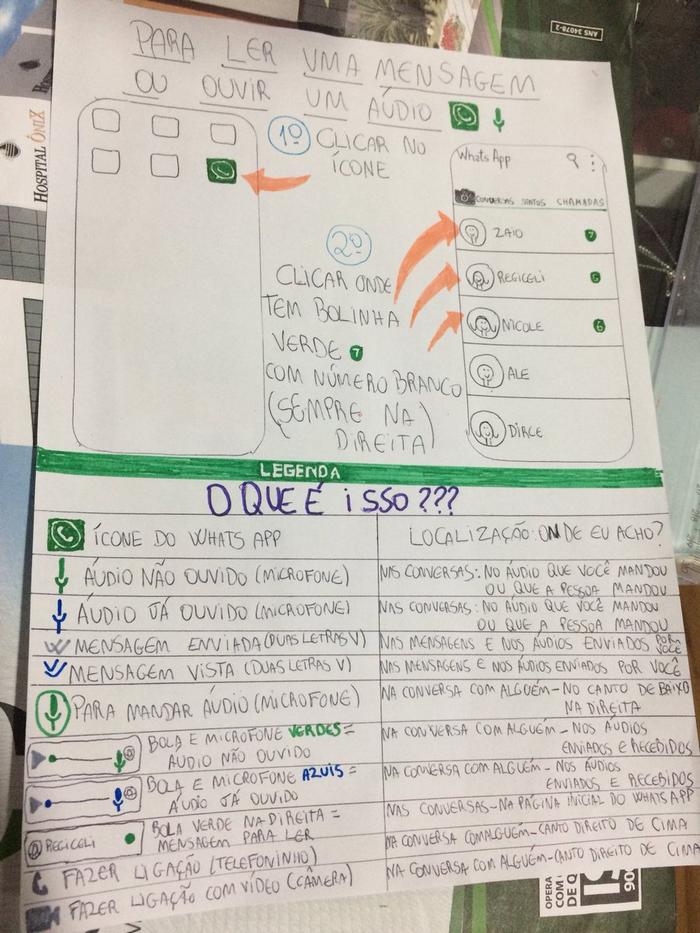 PARA LER UMA MENSAGEM
OU OUVIR UM ÁUDIO
1º CLICAR NO
ÍCONE
2º
CLICAR ONDE
TEM BOLINHA
VERDE 7
COM NÚMERO BRANCO
(SEMPRE NA
DIREITA)
Whats App
CONVERSAS STATUS CHAMADAS
ZAIO 7
REGICELI 5
NICOLE 6
ALE
DIRCE
LEGENDA
O QUE É ISSO???
ÍCONE DO WHATS APP
LOCALIZAÇÃO: ONDE EU ACHO?
ÁUDIO NÃO OUVIDO (MICROFONE)
NAS CONVERSAS: NO ÁUDIO QUE VOCÊ MANDOU
OU QUE A PESSOA MANDOU
ÁUDIO JÁ OUVIDO (MICROFONE)
NAS CONVERSAS: NO ÁUDIO QUE VOCÊ MANDOU
OU QUE A PESSOA MANDOU
MENSAGEM ENVIADA (DUAS LETRAS V)
NAS MENSAGENS E NOS ÁUDIOS ENVIADOS POR VOCÊ
MENSAGEM VISTA (DUAS LETRAS V)
NAS MENSAGENS E NOS ÁUDIOS ENVIADOS POR VOCÊ
PARA MANDAR ÁUDIO (MICROFONE)
NA CONVERSA COM ALGUÉM - NO CANTO DE BAIXO
NA DIREITA
BOLA E MICROFONE VERDES =
ÁUDIO NÃO OUVIDO
NA CONVERSA COM ALGUÉM - NOS ÁUDIOS
ENVIADOS E RECEBIDOS
BOLA E MICROFONE AZUIS =
ÁUDIO JÁ OUVIDO
NA CONVERSA COM ALGUÉM - NOS ÁUDIOS
ENVIADOS E RECEBIDOS
REGICELI
BOLA VERDE NA DIREITA =
MENSAGEM PARA LER
NAS CONVERSAS - NA PÁGINA INICIAL DO WHATS APP
FAZER LIGAÇÃO (TELEFONINHO)
NA CONVERSA COM ALGUÉM - CANTO DIREITO DE CIMA
FAZER LIGAÇÃO COM VÍDEO (CÂMERA)
NA CONVERSA COM ALGUÉM - CANTO DIREITO DE CIMA
HOSPITAL ÔNIX
ANS 34078-2
OPERA
COM
DE Q
90